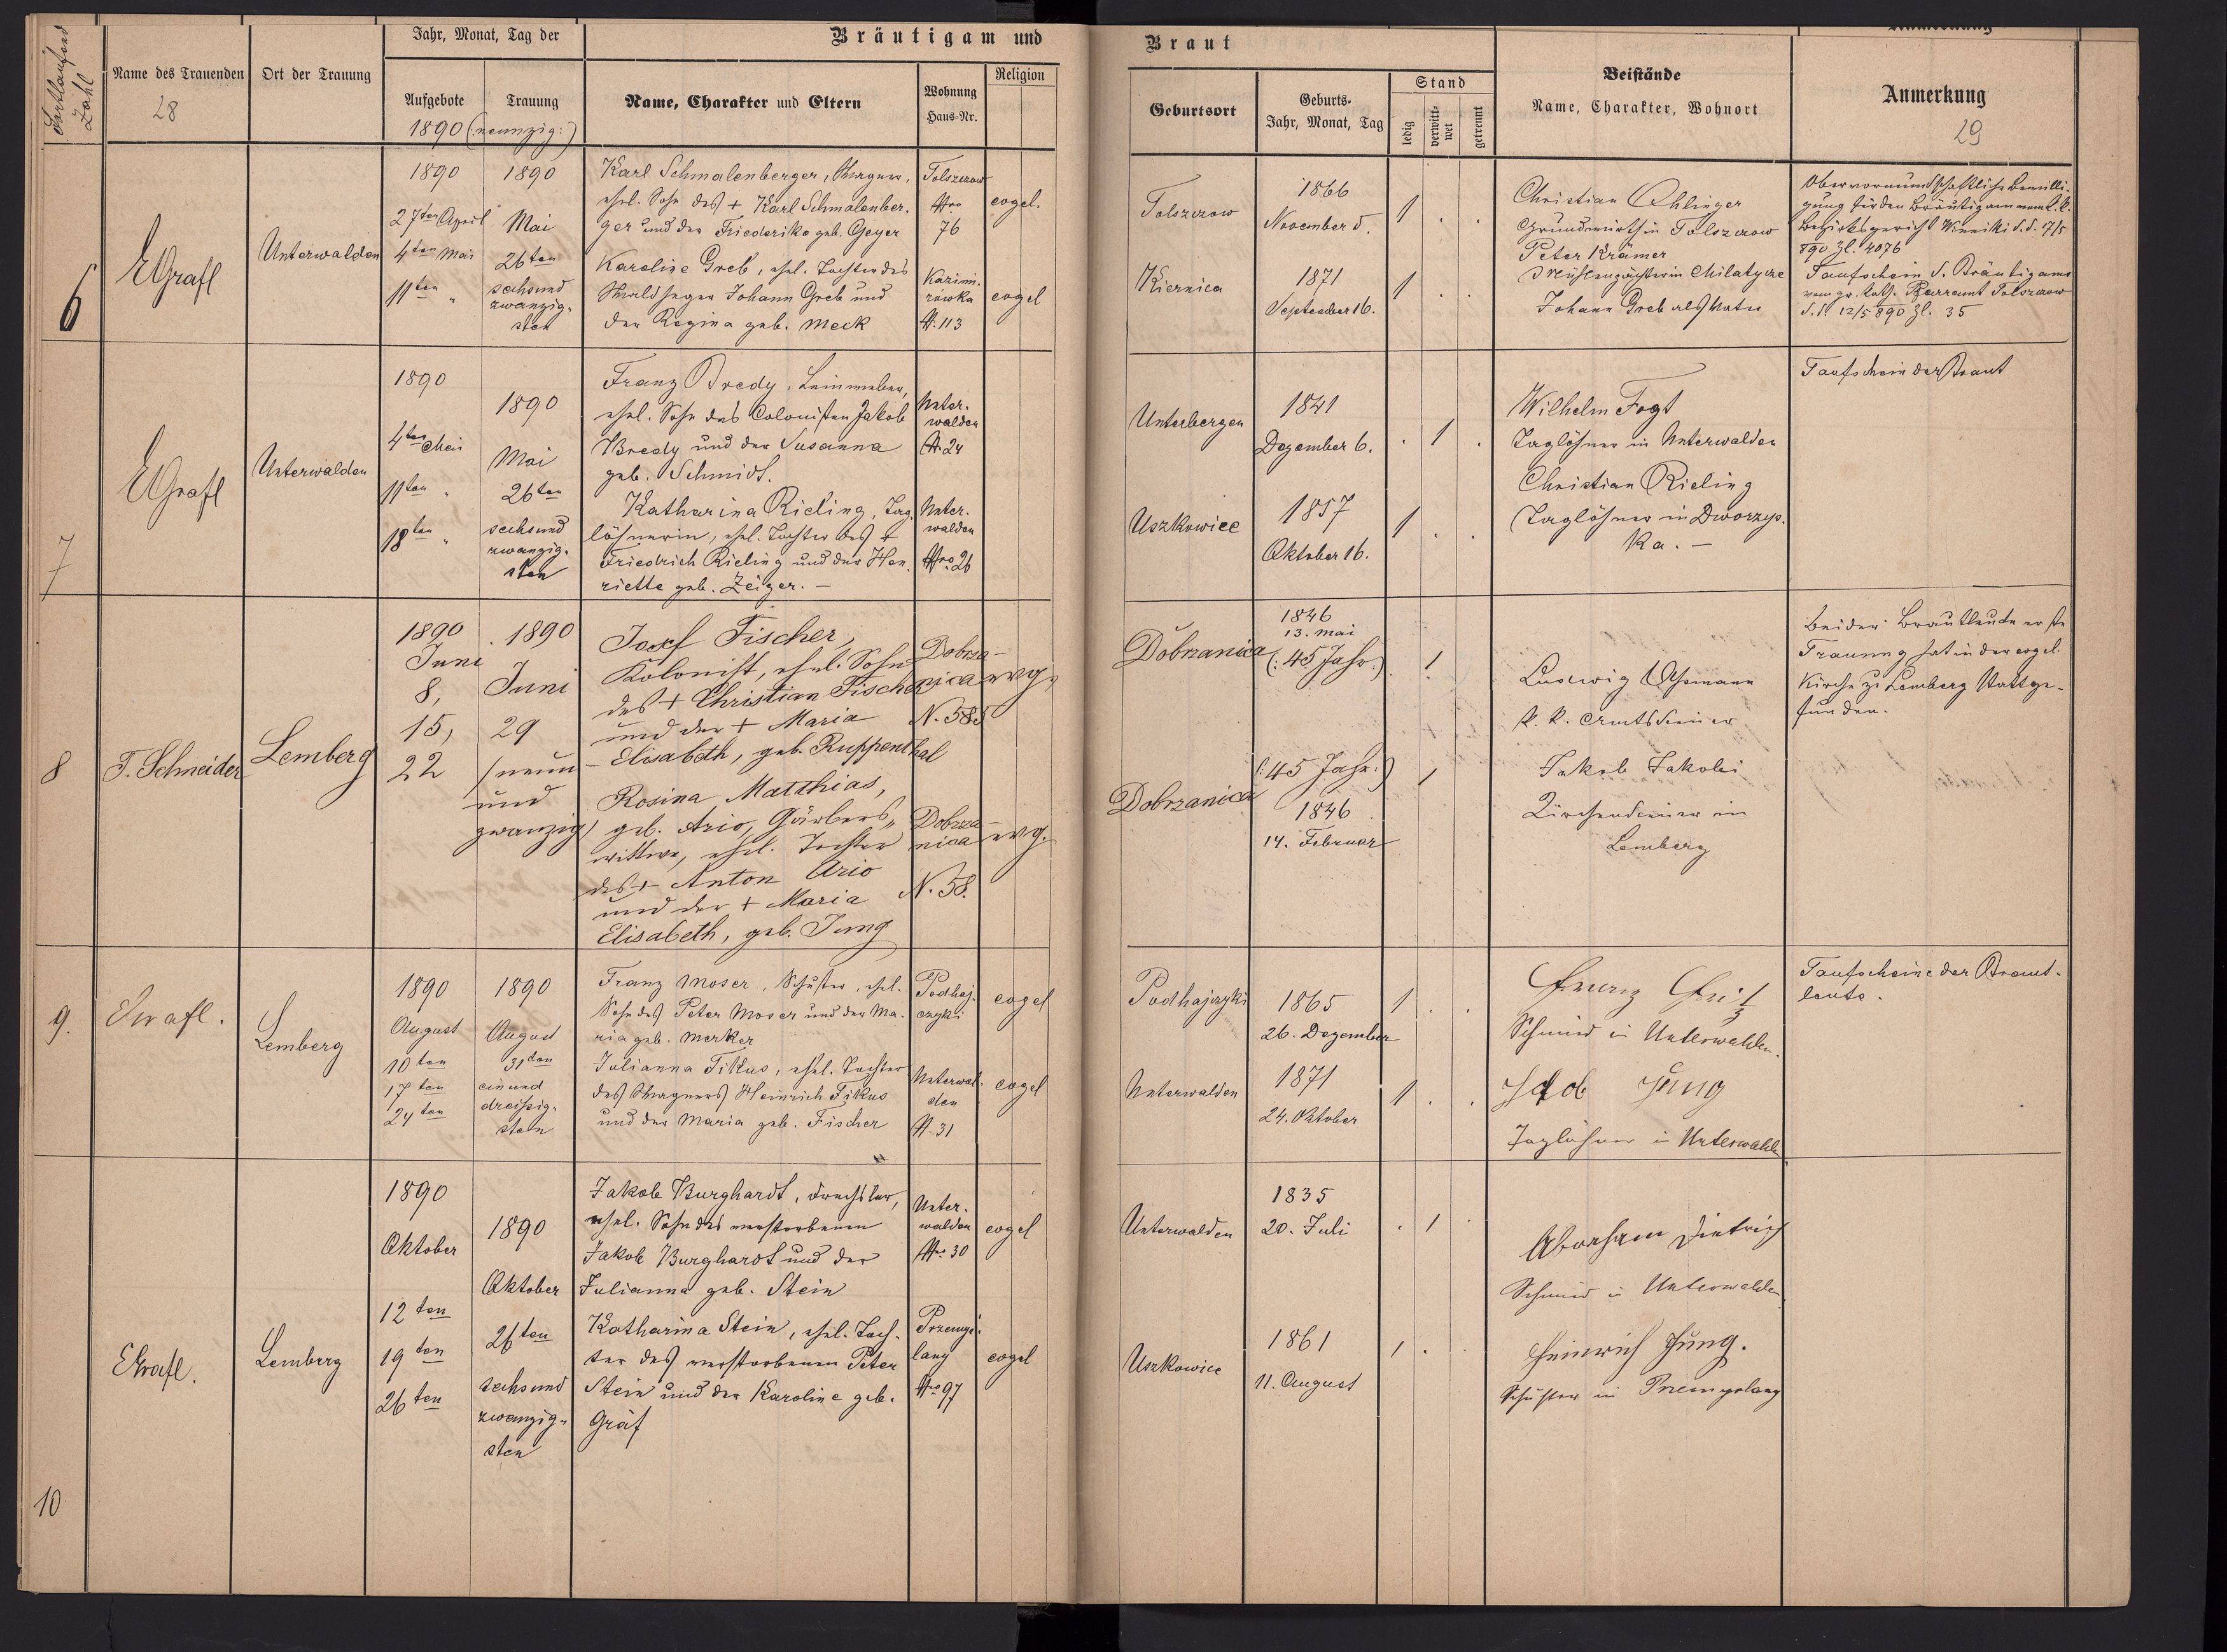 Fortlaufend
Zahl
Name des Trauenden
28
Ort der Trauung
Jahr, Monat, Tag der
Aufgebote
Trauung
1890 (:neunzig:)
Bräutigam und
Name, Charakter und Eltern
Wohnung
Haus-Nr.
Religion
Braut
Geburtsort
Geburts-
Jahr, Monat, Tag
Stand
ledig
verwitt-
wet
getrennt
Beistände
Name, Charakter, Wohnort
Anmerkung
29
6
EGrafl
Unterwalden
1890
27ten April
4ten Mai
11ten "
1890
Mai
26ten
sechsund
zwanzig-
sten
Karl Schmalenberger, Wagner,
ehel. Sohn des + Karl Schmalenber-
ger und der Friederike geb. Geyer
Karoline Greb, ehel. Tochter des
Waldheger Johann Greb und
der Regina geb. Meck
Tolszczow
Nro
76
Kazimi-
rowka
N. 113
evgel.
evgel
Tolszczow
Kiernica
1866
November 5.
1871
September 16.
1 . .
1 . .
Christian Ohlinger
Grundwirth in Tolszczow
Peter Krämer
Mühlenpächter in Milatycze
Johann Greb als Vater
Obervormundschaftliche Bewilli-
gung für den Bräutigam vom k.k.
Bezirksgericht Winniki d.d. 17/5
890 Zl. 4076
Taufschein d. Bräutigams
vom gr. kath. Pfarramt Tolszczow
d.d. 12/5 890 Zl. 35
7
EGrafl
Unterwalden
1890
4ten Mai
11ten "
18ten "
1890
Mai
26ten
sechsund
zwanzig-
sten
Franz Bredy, Leinweber,
ehel. Sohn des Colonisten Jakob
Bredy und der Susanna
geb. Schmidt.
Katharina Rieling, Tag-
löhnerin, ehel. Tochter des +
Friedrich Rieling und der Hen-
riette geb. Zeiger. –
Unter-
walden
N. 24
Unter-
walden
Nro 26
Unterbergen
Uszkowice
1841
Dezember 6.
1857
Oktober 16.
. 1 .
1 . .
Wilhelm Fogt
Taglöhner in Unterwalden
Christian Rieling
Taglöhner in Dworzys-
ka. –
Taufschein der Braut
8
T. Schneider
Lemberg
1890
Juni
8,
15,
22
1890
Juni
29
(neun-
und
zwanzig)
Josef Fischer,
Kolonist, ehel. Sohn
des + Christian Fischer
und der + Maria
Elisabeth, geb. Ruppenthal
Rosina Matthias,
geb. Ario, Gärbers-
wittwe, ehel. Tochter
des + Anton Ario
und der + Maria
Elisabeth, geb. Jung
Dobrza-
nica
N. 585
Dobrza-
nica
N. 58.
evg.
evg.
Dobrzanica
Dobrzanica
1846
13. Mai
(:45 Jahr:)
(:45 Jahr:)
1846
14. Februar
1
1
Ludwig
k. k. Amtsdiener
Jakob Jakobi
Kirchendiener in
Lemberg
Beider Brautleute erste
Trauung hat in der evgel.
Kirche zu Lemberg stattge-
funden.
9.
EGrafl.
Lemberg
1890
August
10ten
17ten
24ten
1890
August
31ten
einund
dreißig-
sten
Franz Moser, Schuster, ehel.
Sohn des Peter Moser und der Ma-
ria geb. Merker
Julianna Fikus, ehel. Tochter
des Wagners Heinrich Fikus
und der Maria geb. Fischer
Podhaj-
czyki
Unterwal-
den
N. 31
evgel
evgel
Podhajczyki
Unterwalden
1865
26. Dezember
1871
24. Oktober
1 . .
1 . .
Schmied in Unterwalden.
Jakob Jung
Taglöhner in Unterwalden
Taufscheine der Braut-
leute.
10
EGrafl.
Lemberg
1890
Oktober
12ten
19ten
26ten
1890
Oktober
26ten
sechsund
zwanzig-
sten
Jakob Burghardt, Drechsler,
ehel. Sohn des verstorbenen
Jakob Burghardt und der
Julianna geb. Stein
Katharina Stein, ehel. Toch-
ter des verstorbenen Peter
Stein und der Karoline geb.
Gräf
Unter-
walden
Nro. 30
Przemys-
lany
Nro 97
evgel
evgel
Unterwalden
Uszkowice
1835
20. Juli
1861
11. August
. 1 .
1 . .
Abraham Dietrich
Schmied in Unterwalden
Heinrich Jung.
Schuster in